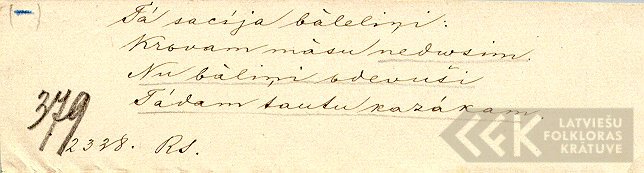 Tá sacíja bâleliņi:
Krovam mâsu nedwsim.
Nu bâliņi odevuši
Tádam tautu kazákam.
379
2338. Rs.
LATVIEŠU
FOLKLORAS
KRĀTUVE